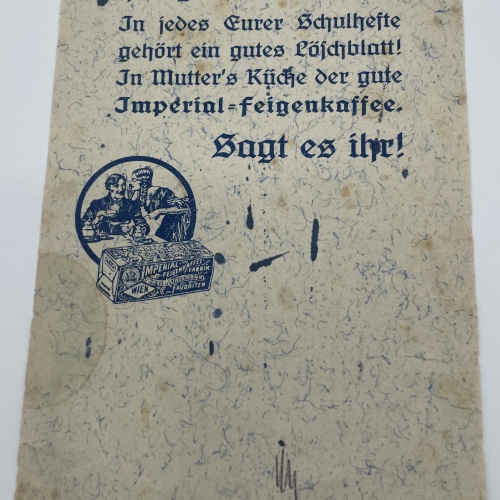 In jedes Eurer Schulhefte
gehört ein gutes Löschblatt!
In Mutter's Küche der gute
Impérial-Feigenkaffee.
Sagt es ihr!
IMPÉRIAL
FEIGENKAFFEE
FABRIK
WIEN
FAVORITEN